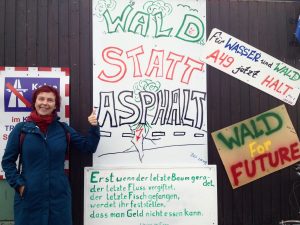 WALD
STATT
ASPHALT
Erst wenn der letzte Baum gerodet,
der letzte Fluss vergiftet,
der letzte Fisch gefangen,
werdet ihr feststellen,
dass man Geld nicht essen kann.
Für WASSER und WALD
A49 jetzt
HALT...
WALD
FOR
FUTURE